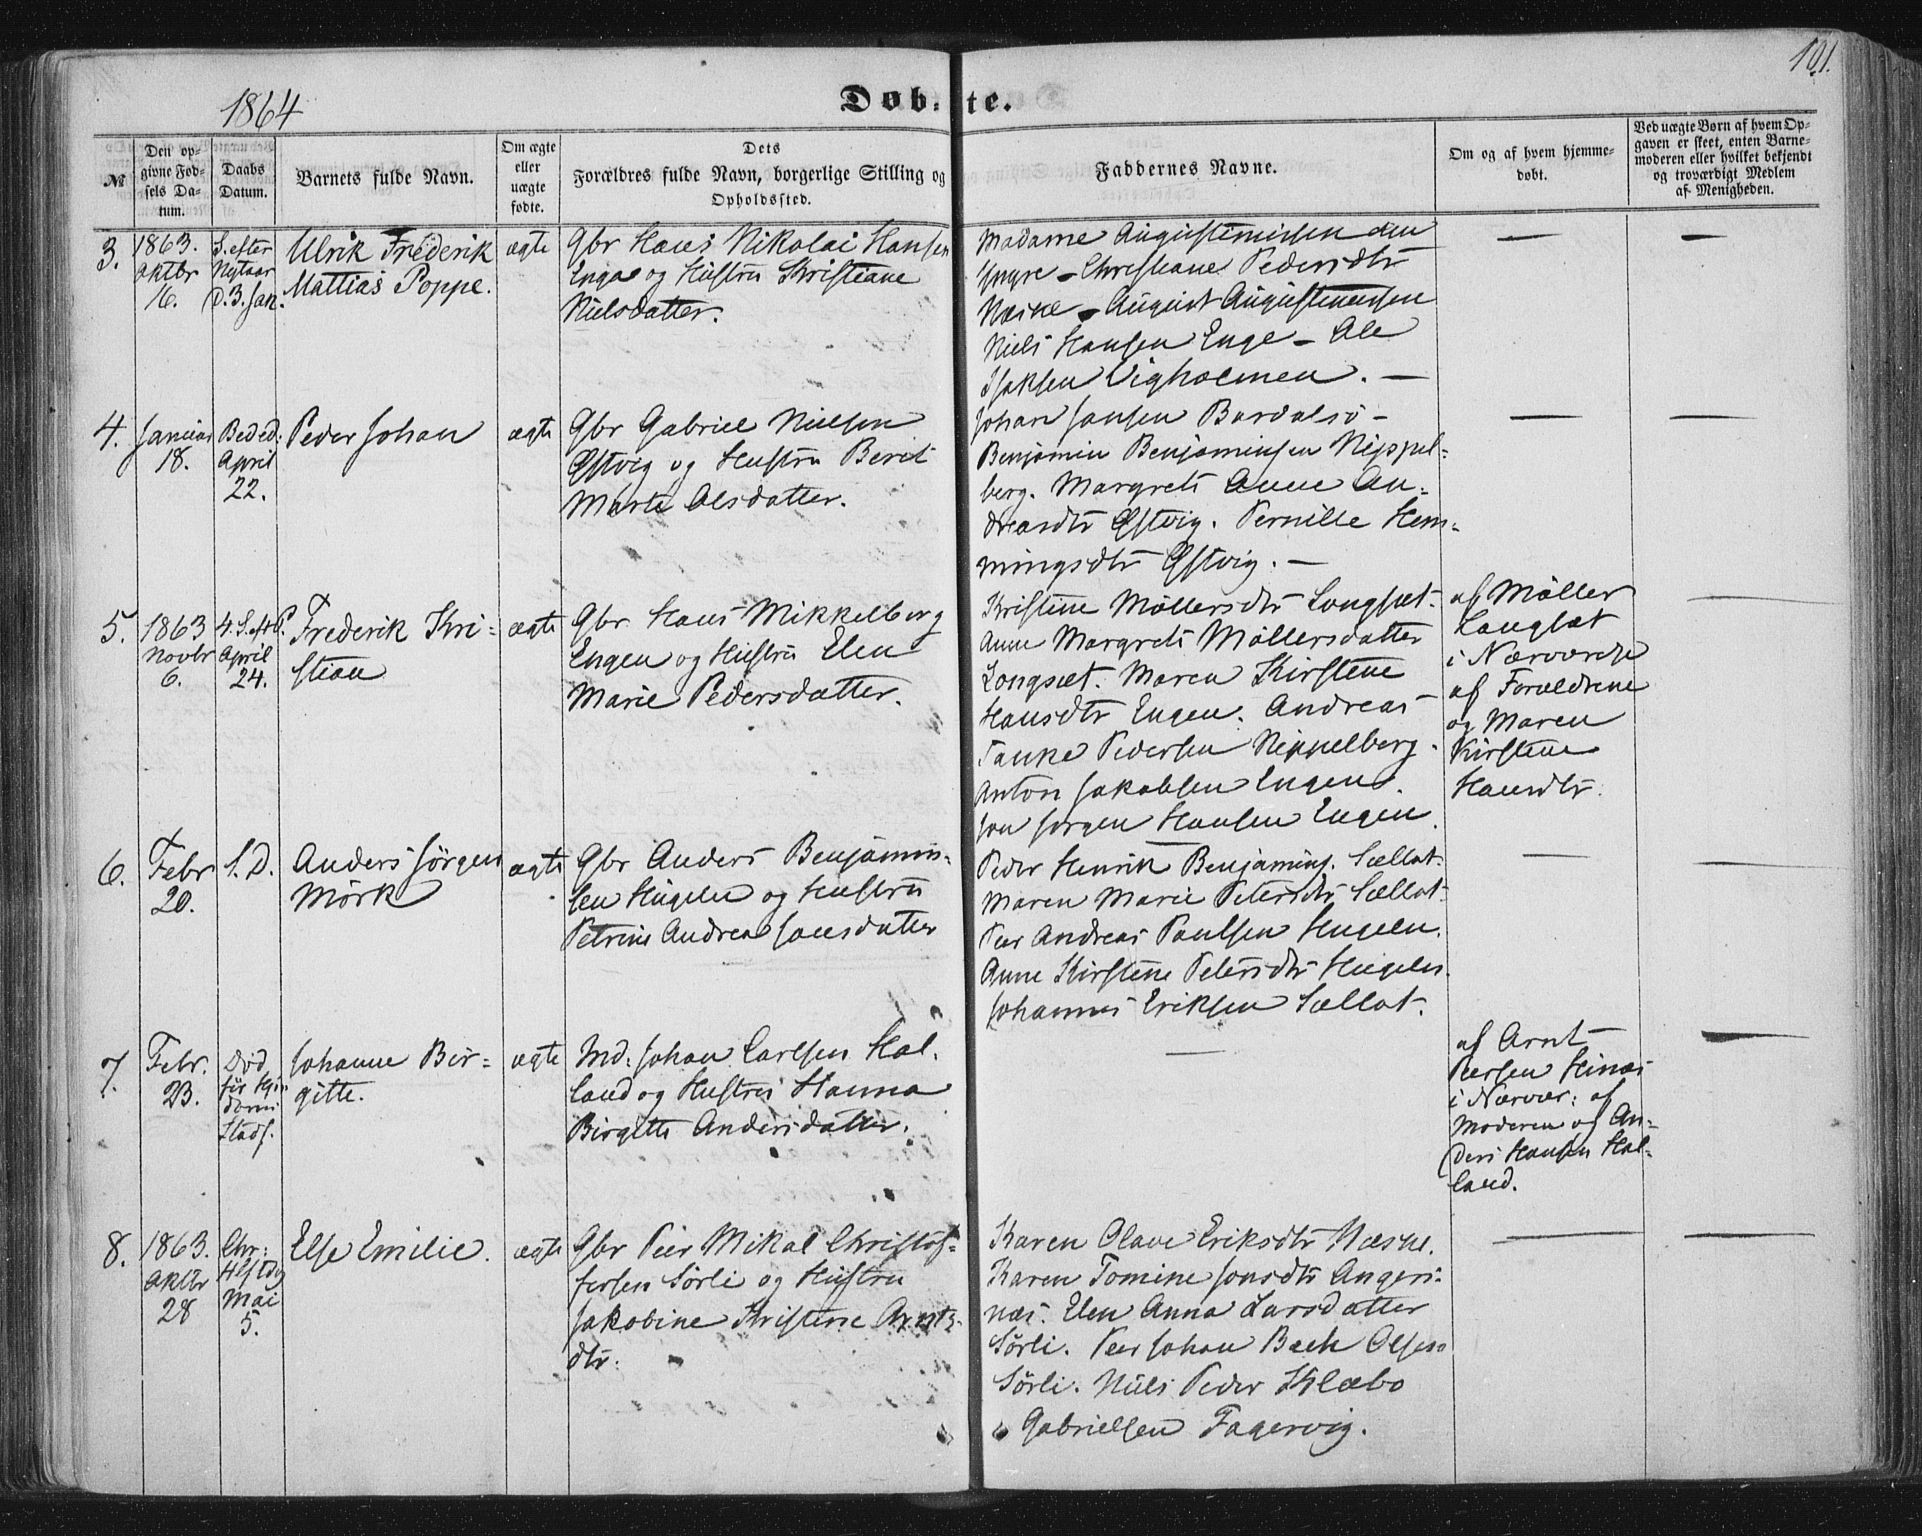 1864
Døbte.
101.
№
Den opgivne Fødsels Datum.
Daabs Datum.
Barnets fulde Navn.
Om ægte eller uægte fødte.
Dets Forældres fulde Navn, borgerlige Stilling og Opholdssted.
Faddernes Navne.
Om og af hvem hjemmedøbt.
Ved uægte Børn af hvem Opgaven er skeet, enten Barnemoderen eller hvilket bekjendt og troværdigt Medlem af Menigheden.
3.
1863.
Oktbr
16.
S. efter
Nytaar
d. 3. Jan.
Ulrik Frederik
Mattias Poppe.
ægte
Gbr Hans Nikolai Hansen
Enge og Hustru Kristiane
Nielsdatter.
Madame Augustinussen den
Yngre - Christiane Pedersdtr
Næsne - August Augustinussen
Niels Hansen Enge - Ole
Isaksen Vigholmen. -
4.
Januar
18.
Beded.
April
22.
Peder Johan
ægte
Gbr Gabriel Nielsen
Estvig og Hustru Berit
Marta Olsdatter.
Johan Jansen Bardalsø -
Benjamin Benjaminsen Nippel-
berg. Margrete Anne An-
dreasdtr Estvig. Pernille Hem-
mingsdtr Estvig. -
5.
1863
Novbr
6.
4. S. eft. P.
April
24.
Frederik Kri-
stian
ægte
Gbr Hans Mikkelborg
Engen og Hustru Elen
Marie Pedersdatter.
Kristine Møllersdtr Longsæt.
Anne Margrete Møllersdatter
Longsæt. Maren Kirstine
Hansdtr Engen. Andreas
Tanke Pedersen Nippelberg.
Anton Jakobsen Engen.
Jon Jørgen Hansen Engen.
af Møller
Langsæt
i Nærværelse
af Forældrene
og Maren
Kirstine
Hansdtr.
6.
Febr
20.
S. D.
Anders Jørgen
Mørk
ægte
Gbr Anders Benjamin-
sen Hugelen og Hustru
Petrine Andrea Jansdatter
Peder Henrik Benjamins. Sællot.
Maren Marie Petersdtr Sællot.
Peer Andreas Paulsen Hugelen.
Anne Kirstine Petersdtr Hugelen.
Johannes Eriksen Sællot.
7.
Febr.
23.
Død
før Hjem
Stadf.
Johanne Bir-
gitte.
ægte
Md. Johan Carlsen Hal-
land og Hustru Hanna
Birgitte Andersdatter.
af Arnt
Peersen Hinæs
i Nærvær: af
Moderen og An-
ders Hansen Hal-
land.
8.
1863.
Oktbr
28
Chr:
Hf
Mai
5.
Else Emilie.
ægte
Gbr Peer Mikal Christof-
fersen Sørli og Hustru
Jakobine Kristine Arnts-
dtr.
Karen Olave Eriksdtr Næsne.
Karen Tomine Jonsdtr Angers-
næs. Elen Anna Larsdatter
Sørli. Peer Johan Bech Olsen
Sørli. Niels Peder Klæbo
Gabrielsen Fagervig.